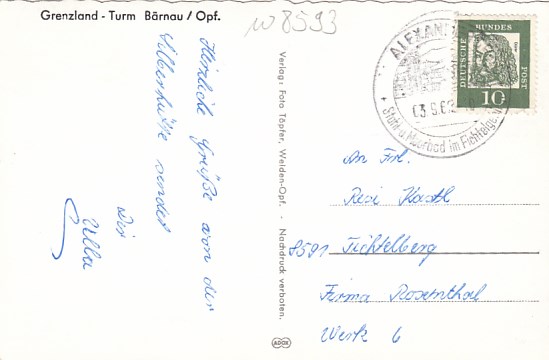 Grenzland - Turm Bärnau / Opf.
w 8593
Herzliche Grüße von der
Silberhütte sendet
Dir
Ulla
Verlag: Foto Töpfer, Weiden-Opf. - Nachdruck verboten.
ADOX
DEUTSCHE BUNDES POST
10
Stahl u. Moorbad im Fichtelgeb.
An Frl.
Resi Kastl
8591 Fichtelberg
Firma Rosenthal
Werk 6